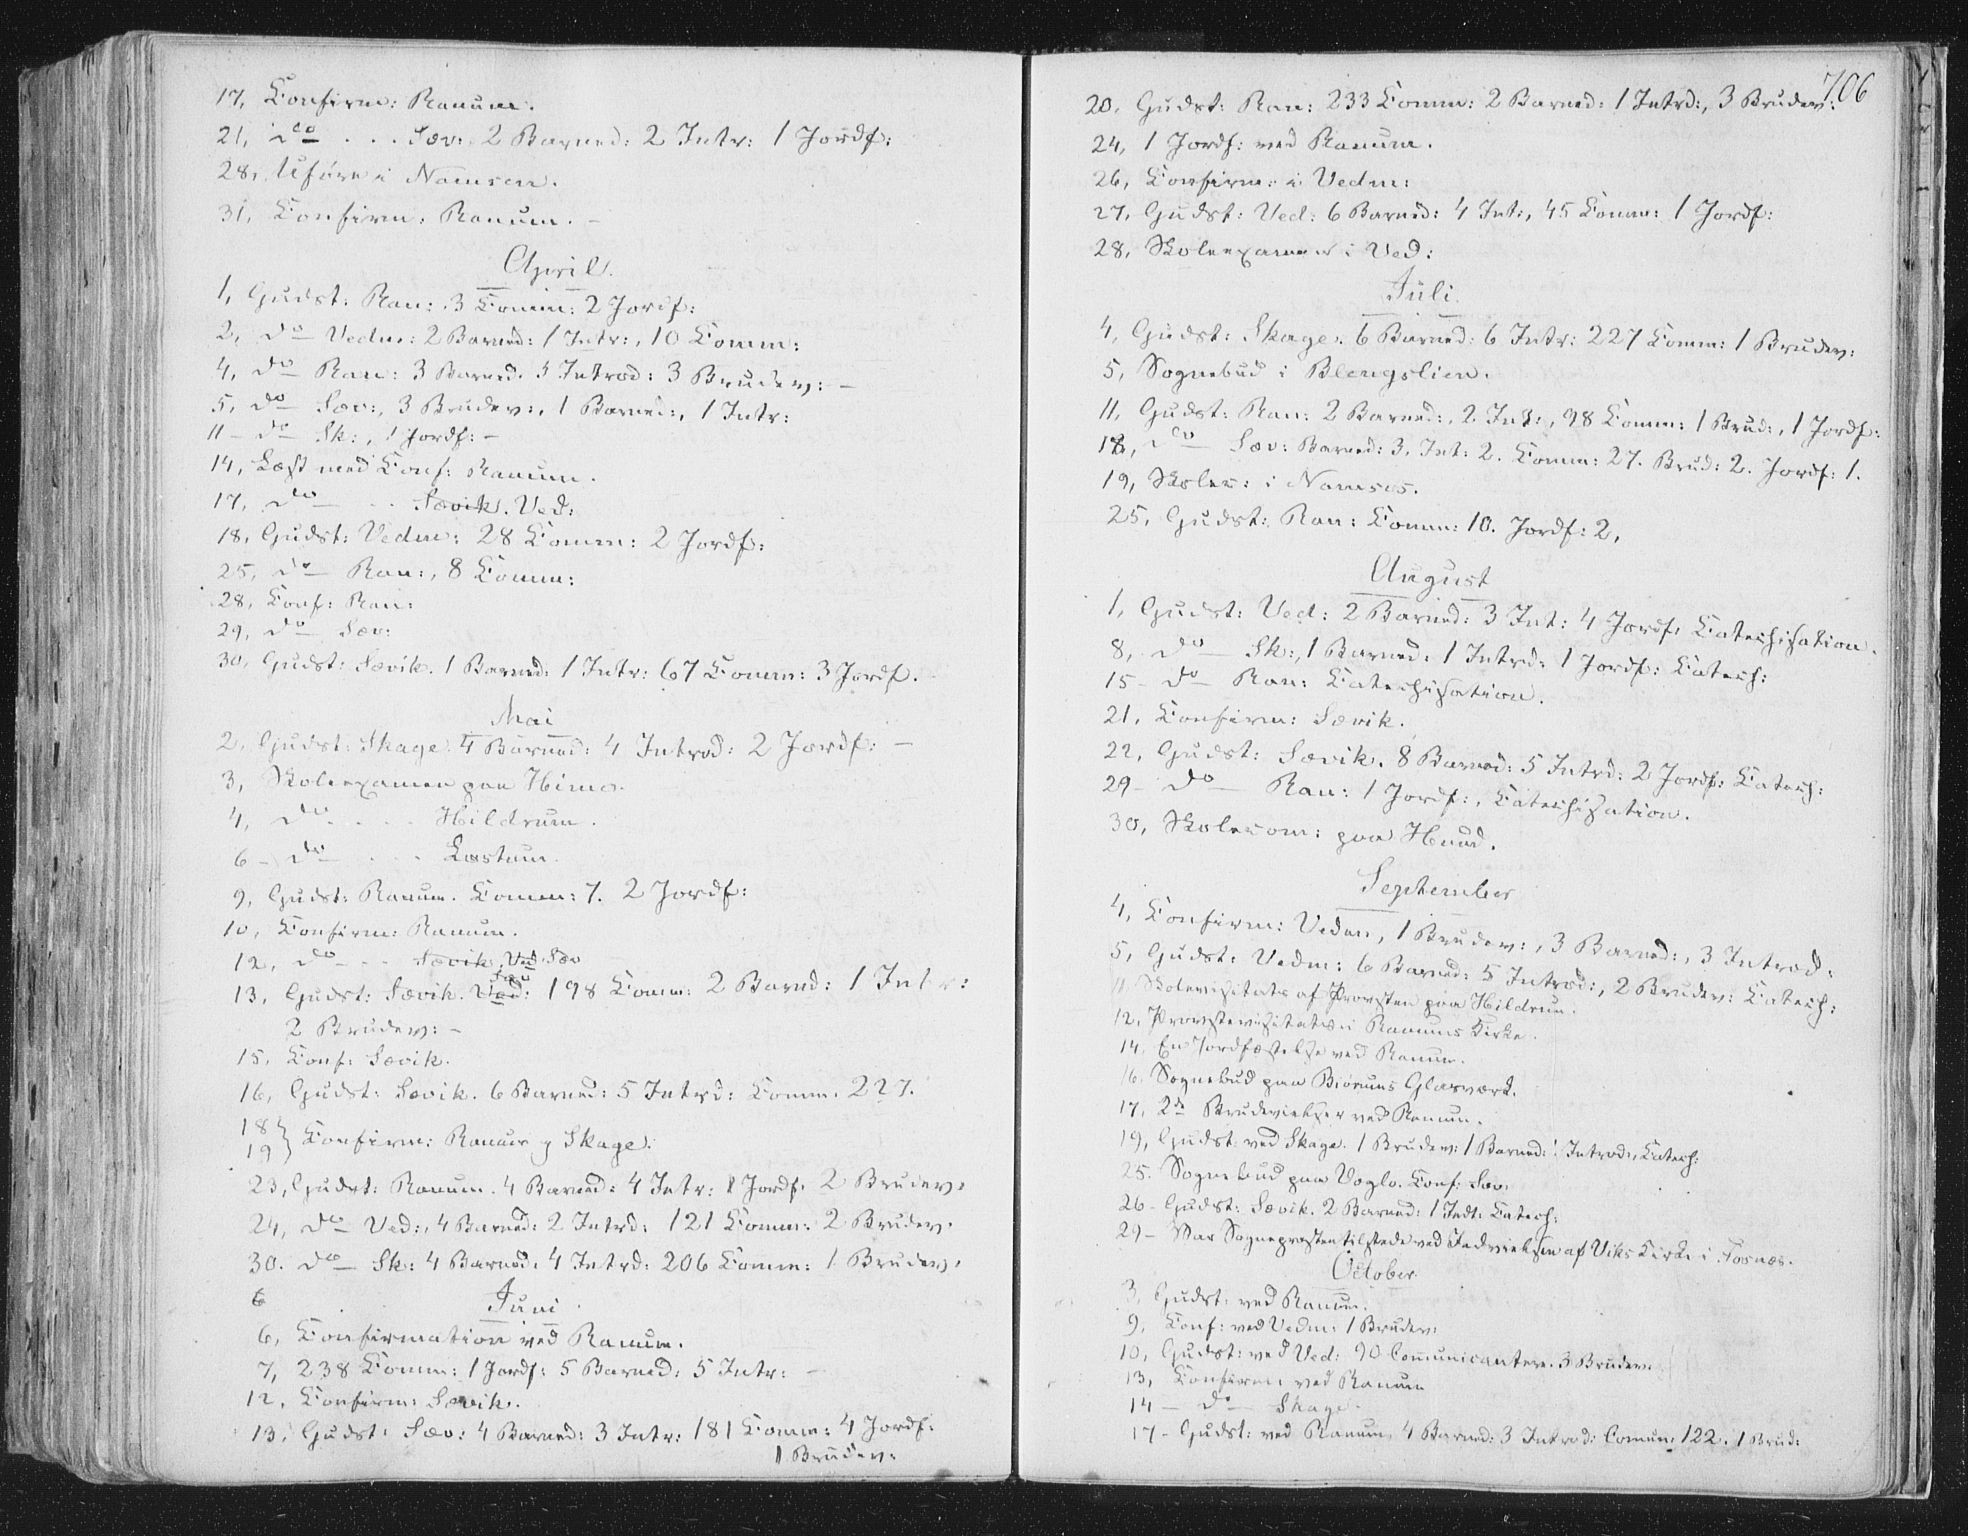 17, Confirm: Ranum.
21, do . . . Sæv: 2 Barned: 2 Intr: 1 Jordf:
28, Uføre i Namsen.
31, Confirm: Ranum. –
April.
1, Gudst: Ran: 3 Comm: 2 Jordf:
2, do Vedm: 2 Barned: 1 Intr:, 10 Comm:
4, do Ran: 3 Barned. 3 Introd: 3 Brudev: –
5, do Sæv:, 3 Brudev:, 1 Barned:, 1 Intr:
11 – do – Sk:, 1 Jordf: –
14, Læst med Conf: Ranum.
17, do – . . Sævik. Ved:
18, Gudst: Vedm: 28 Comm: 2 Jordf:
25, do – Ran:, 8 Comm:
28, Conf: Ran:
29, do – Sæv:
30, Gudst: Sævik. 1 Barned: 1 Intr: 67 Comm: 3 Jordf.
Mai
2, Gudst: Skage. 4 Barned: 4 Introd: 2 Jordf: –
3, Skoleexamen paa Himo.
4, do . . . . Hildrum.
6 – do – . . . Lostum.
9, Gudst: Ranum. Comm: 7. 2 Jordf:
10, Confirm: Ranum.
12, do – . . Sævik. Ved Sæv
13, Gudst: Sævik. Ved: Sæv 198 Comm: 2 Barnd: 1 Intr:
2 Brudev: –
15, Conf: Sævik.
16, Gudst: Sævik. 6 Barned: 5 Intrd: Comm. 227.
18
19} Confirm: Ranum g Skage.
23, Gudst: Ranum. 4 Barned: 4 Intr: 1 Jordf. 2 Brudev:
24, do – Ved:, 4 Barned: 2 Intrd: 121 Comm: 2 Brudev.
30. do – Sk: 4 Barned. 4 Intrd: 206 Comm: 1 Brudev.
6
Juni
6, Confirmation ved Ranum.
7, 238 Comm: 1 Jordf: 5 Barned: 5 Intr: –
12, Confirm: Sævik.
13, Gudst: Sæv: 4 Barned: 3 Intr: 181 Comm: 4 Jordf:
1 Brudev:
706
20, Gudst: Ran: 233 Comm: 2 Barned: 1 Intrd:, 3 Brudev:
24, 1 Jordf: ved Ranum.
26, Confirm: i Vedm:
27, Gudst: Ved: 6 Barned: 4 Int:, 45 Comm: 1 Jordf:
28, Skoleexamen i Ved:
Juli.
4, Gudst: Skage. 6 Barned: 6 Intr: 227 Comm: 1 Brudev:
5, Sognebud i Blengslien.
11, Gudst: Ran: 2 Barned:, 2 Int:, 98 Comm: 1 Brud:, 1 Jordf:
18, do – Sæv: Barned: 3. Int: 2. Comm: 27. Brud: 2. Jordf: 1.
19, Skolex: i Namsos.
25, Gudst: Ran: Comm: 10. Jordf: 2,
August
1, Gudst: Ved: 2 Barned: 3 Int: 4 Jordf: Catechisation.
8, do – Sk:, 1 Barned: 1 Intrd: 1 Jordf: Catech:
15 – do – Ran: Catechisation.
21, Confirm: Sævik.
22, Gudst: Sævik. 8 Barned: 5 Intrd: 2 Jordf: Catech:
29 – do – Ran: 1 Jordf:, Catechisation.
30, Skolexam: paa Hund.
September
4, Confirm: Vedm, 1 Brudev:, 3 Barned:, 3 Introd:
5, Gudst: Vedm: 6 Barned: 5 Introd:, 2 Brudev: Catech:
11. Skolevisitats af Provsten paa Hildrum.
12, Provstevisitats i Ranums Kirke.
14. En Jordfæstelse ved Ranum.
16. Sognebud paa Biørums Glasværk.
17, 2de Brudevielser ved Ranum.
19, Gudst. ved Skage. 1 Brudev: 1 Barned: 1 Introd:, Catech:
25. Sognebud paa Voglo. Conf: Sæv.
26 – Gudst: Sævik. 2 Barned: 1 Indt: Catech:
29 – Var Sognepresten tilstede ved Indvielsen af Viks Kirke i Fosnæs.
October.
3, Gudst: ved Ranum.
9, Conf: ved Vedm: 1 Brudev:
10, Gudst: ved Ved: 90 Communicantere. 3 Brudev:
13, Confirm: ved Ranum
14 – do – Skage.
17 – Gudst: ved Ranum, 4 Barned: 3 Introd: Comun: 122. 1 Brud: